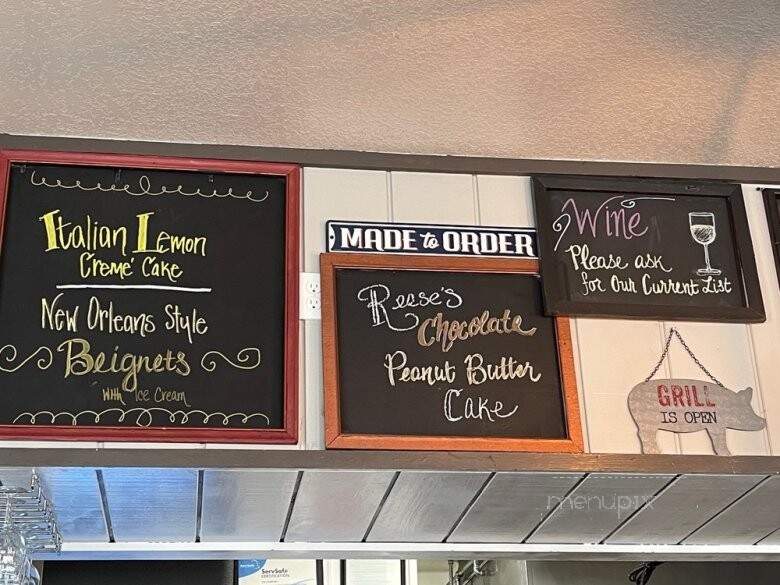 Italian Lemon
Cremé Cake
New Orleans Style
Beignets
With Ice Cream
MADE to ORDER
Reese's
Chocolate
Peanut Butter
Cake
Wine
Please ask
for Our Current List
GRILL
IS OPEN
menupix
ServSafe